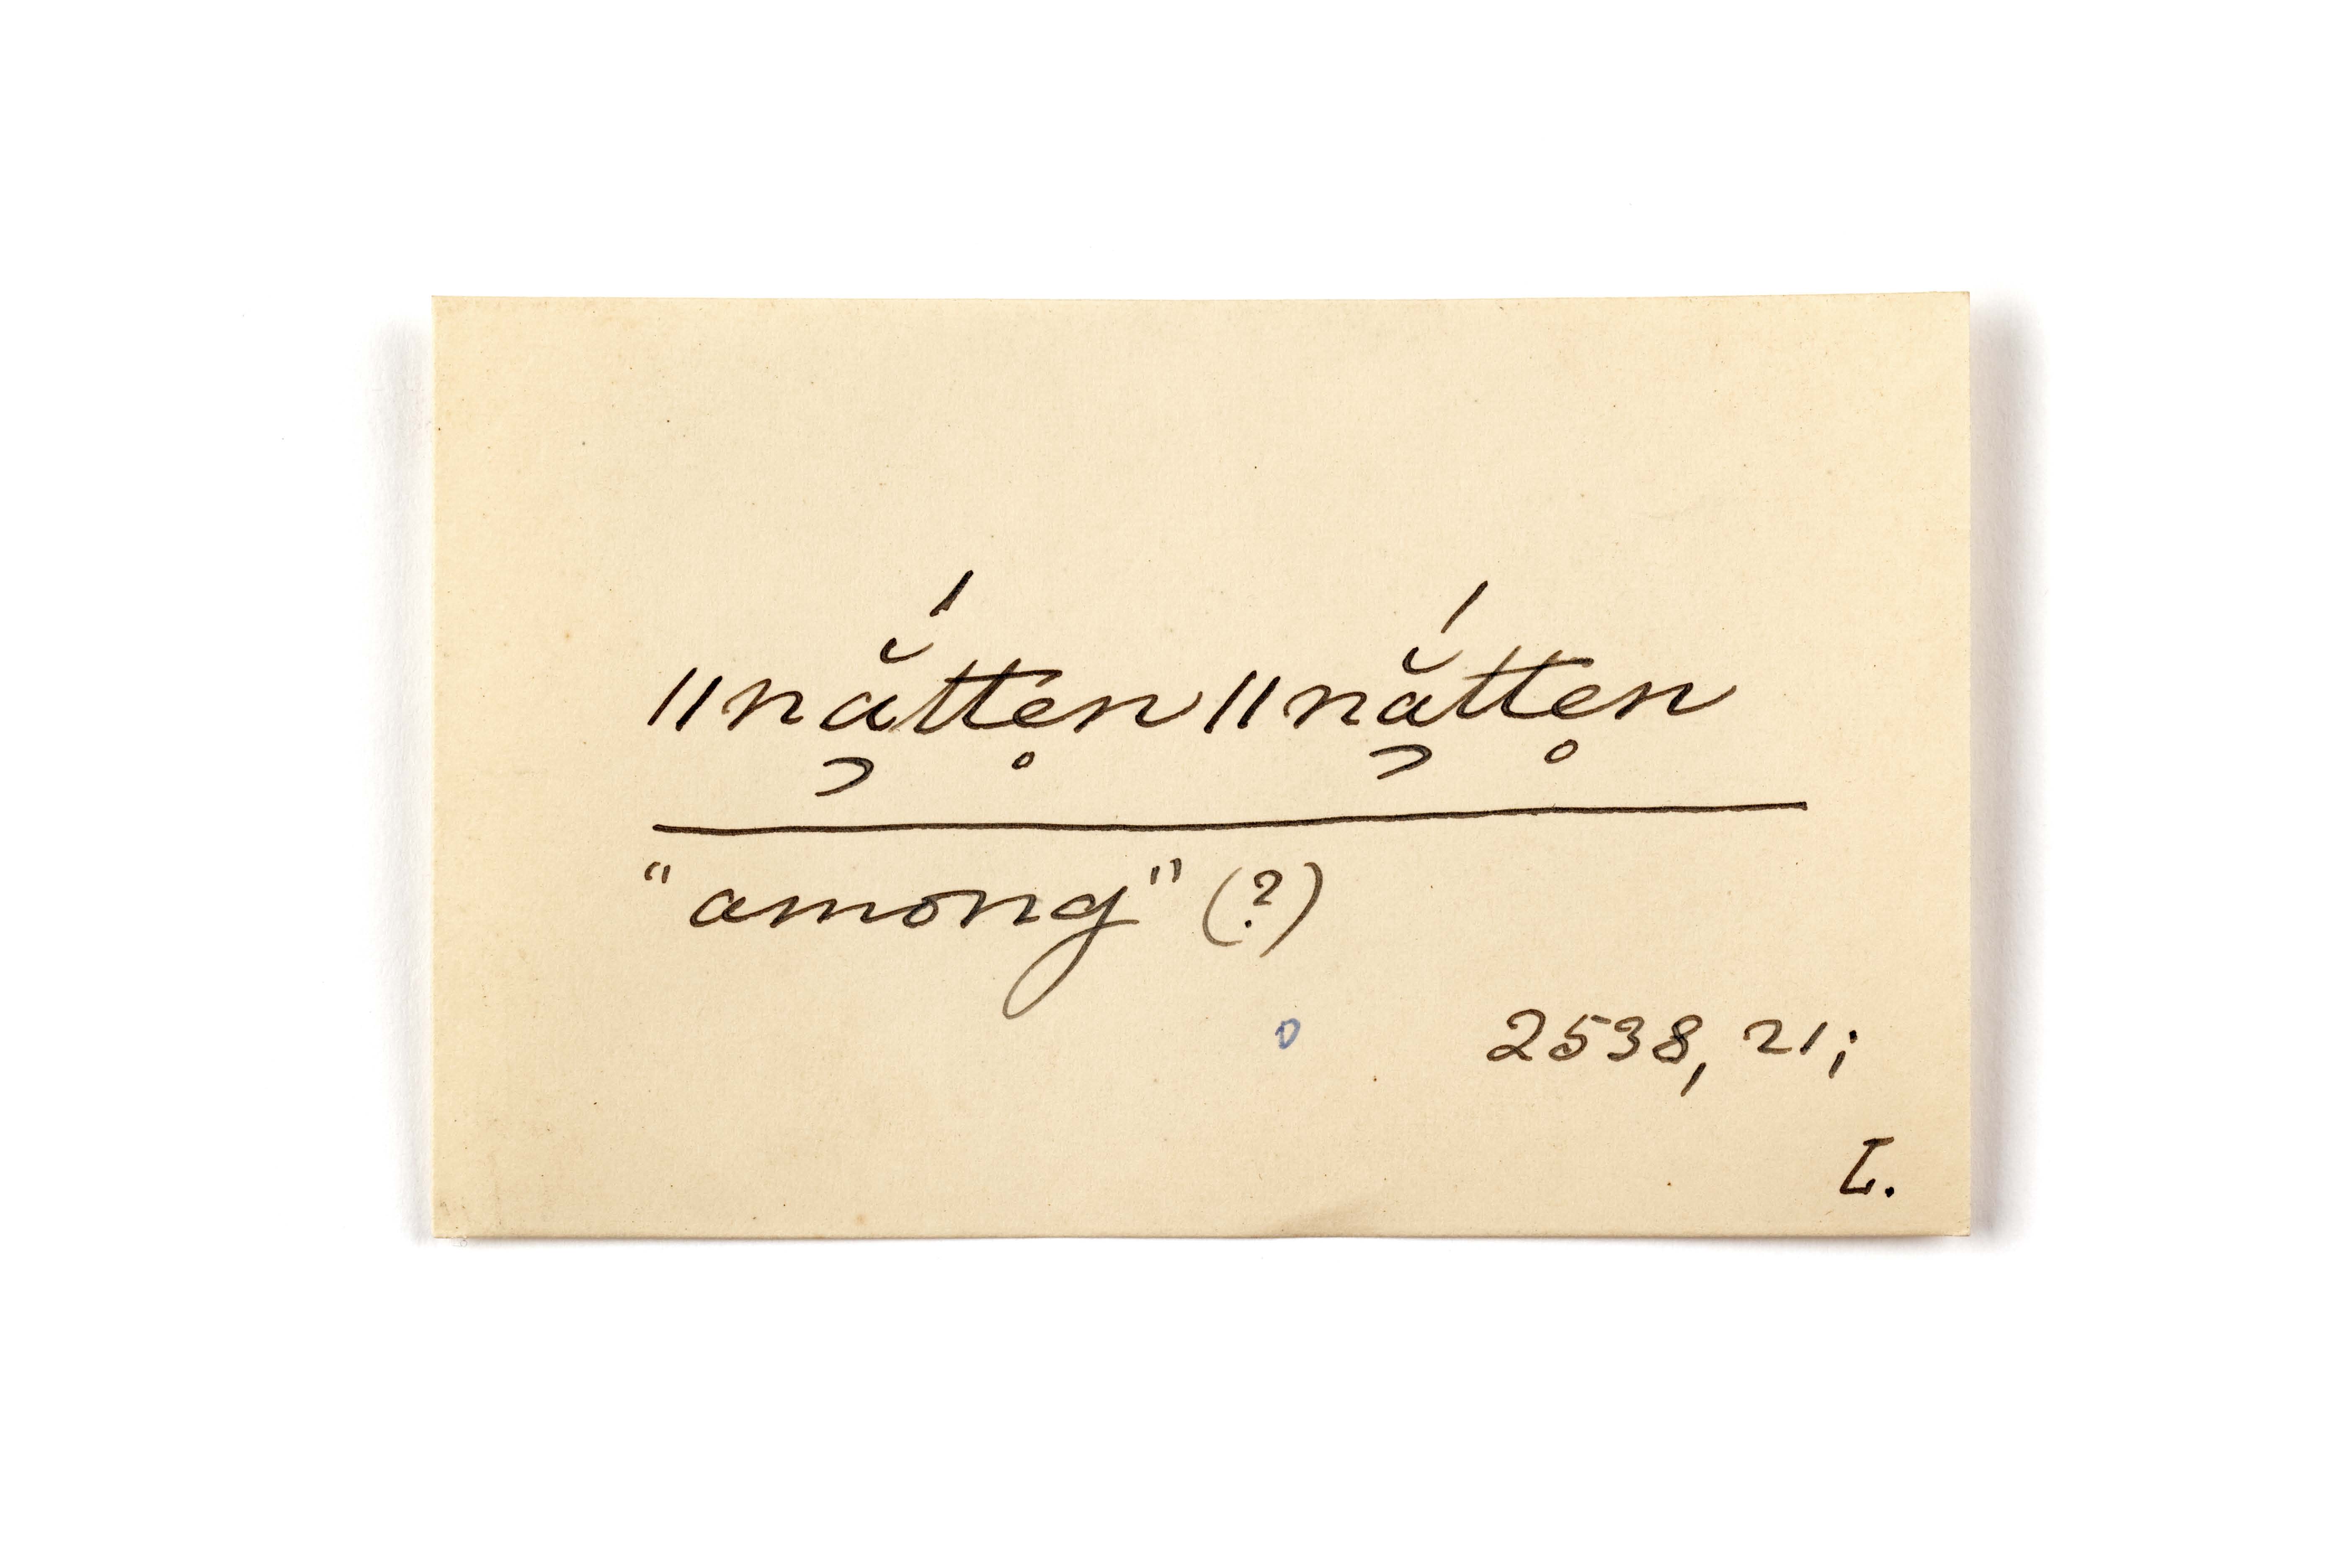 ǁnắ̱tten̥ ǁnắ̱tten̥
"among" (?)
2538, 21;
L.